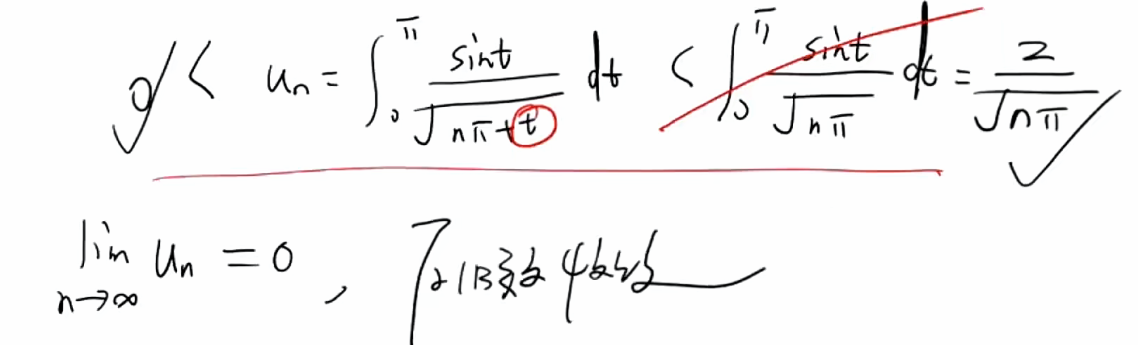 0 < u_n = ∫_0^π sint / √(nπ+t) dt < ∫_0^π sint / √(nπ) dt = 2 / √(nπ)
lim_{n→∞} u_n = 0 ,